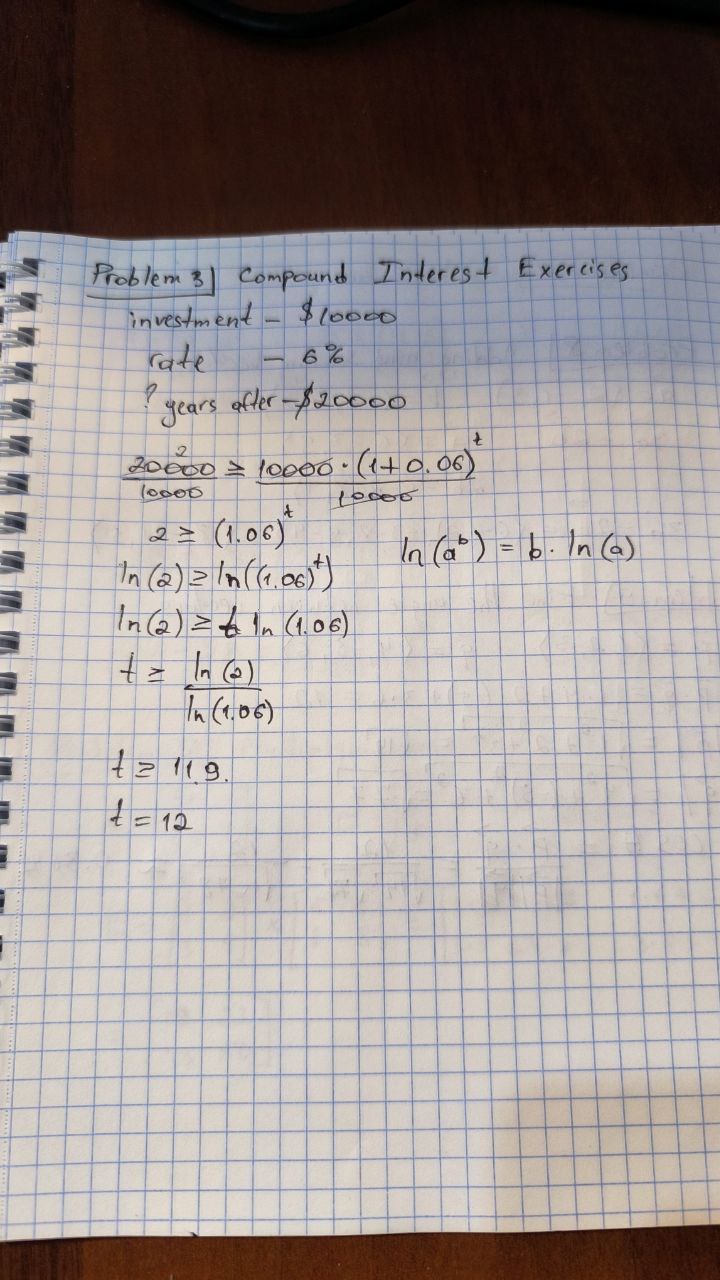 Problem 3) Compound Interest Exercises
investment – $10000
rate – 6%
? years after – $20000
2
20000/10000 ≥ 10000·(1+0.06)^t/10000
2 ≥ (1.06)^t
ln(a^b) = b. ln(a)
ln(2) ≥ ln((1.06)^t)
ln(2) ≥ t ln(1.06)
t ≥ ln(2)/ln(1.06)
t ≥ 11.9.
t = 12